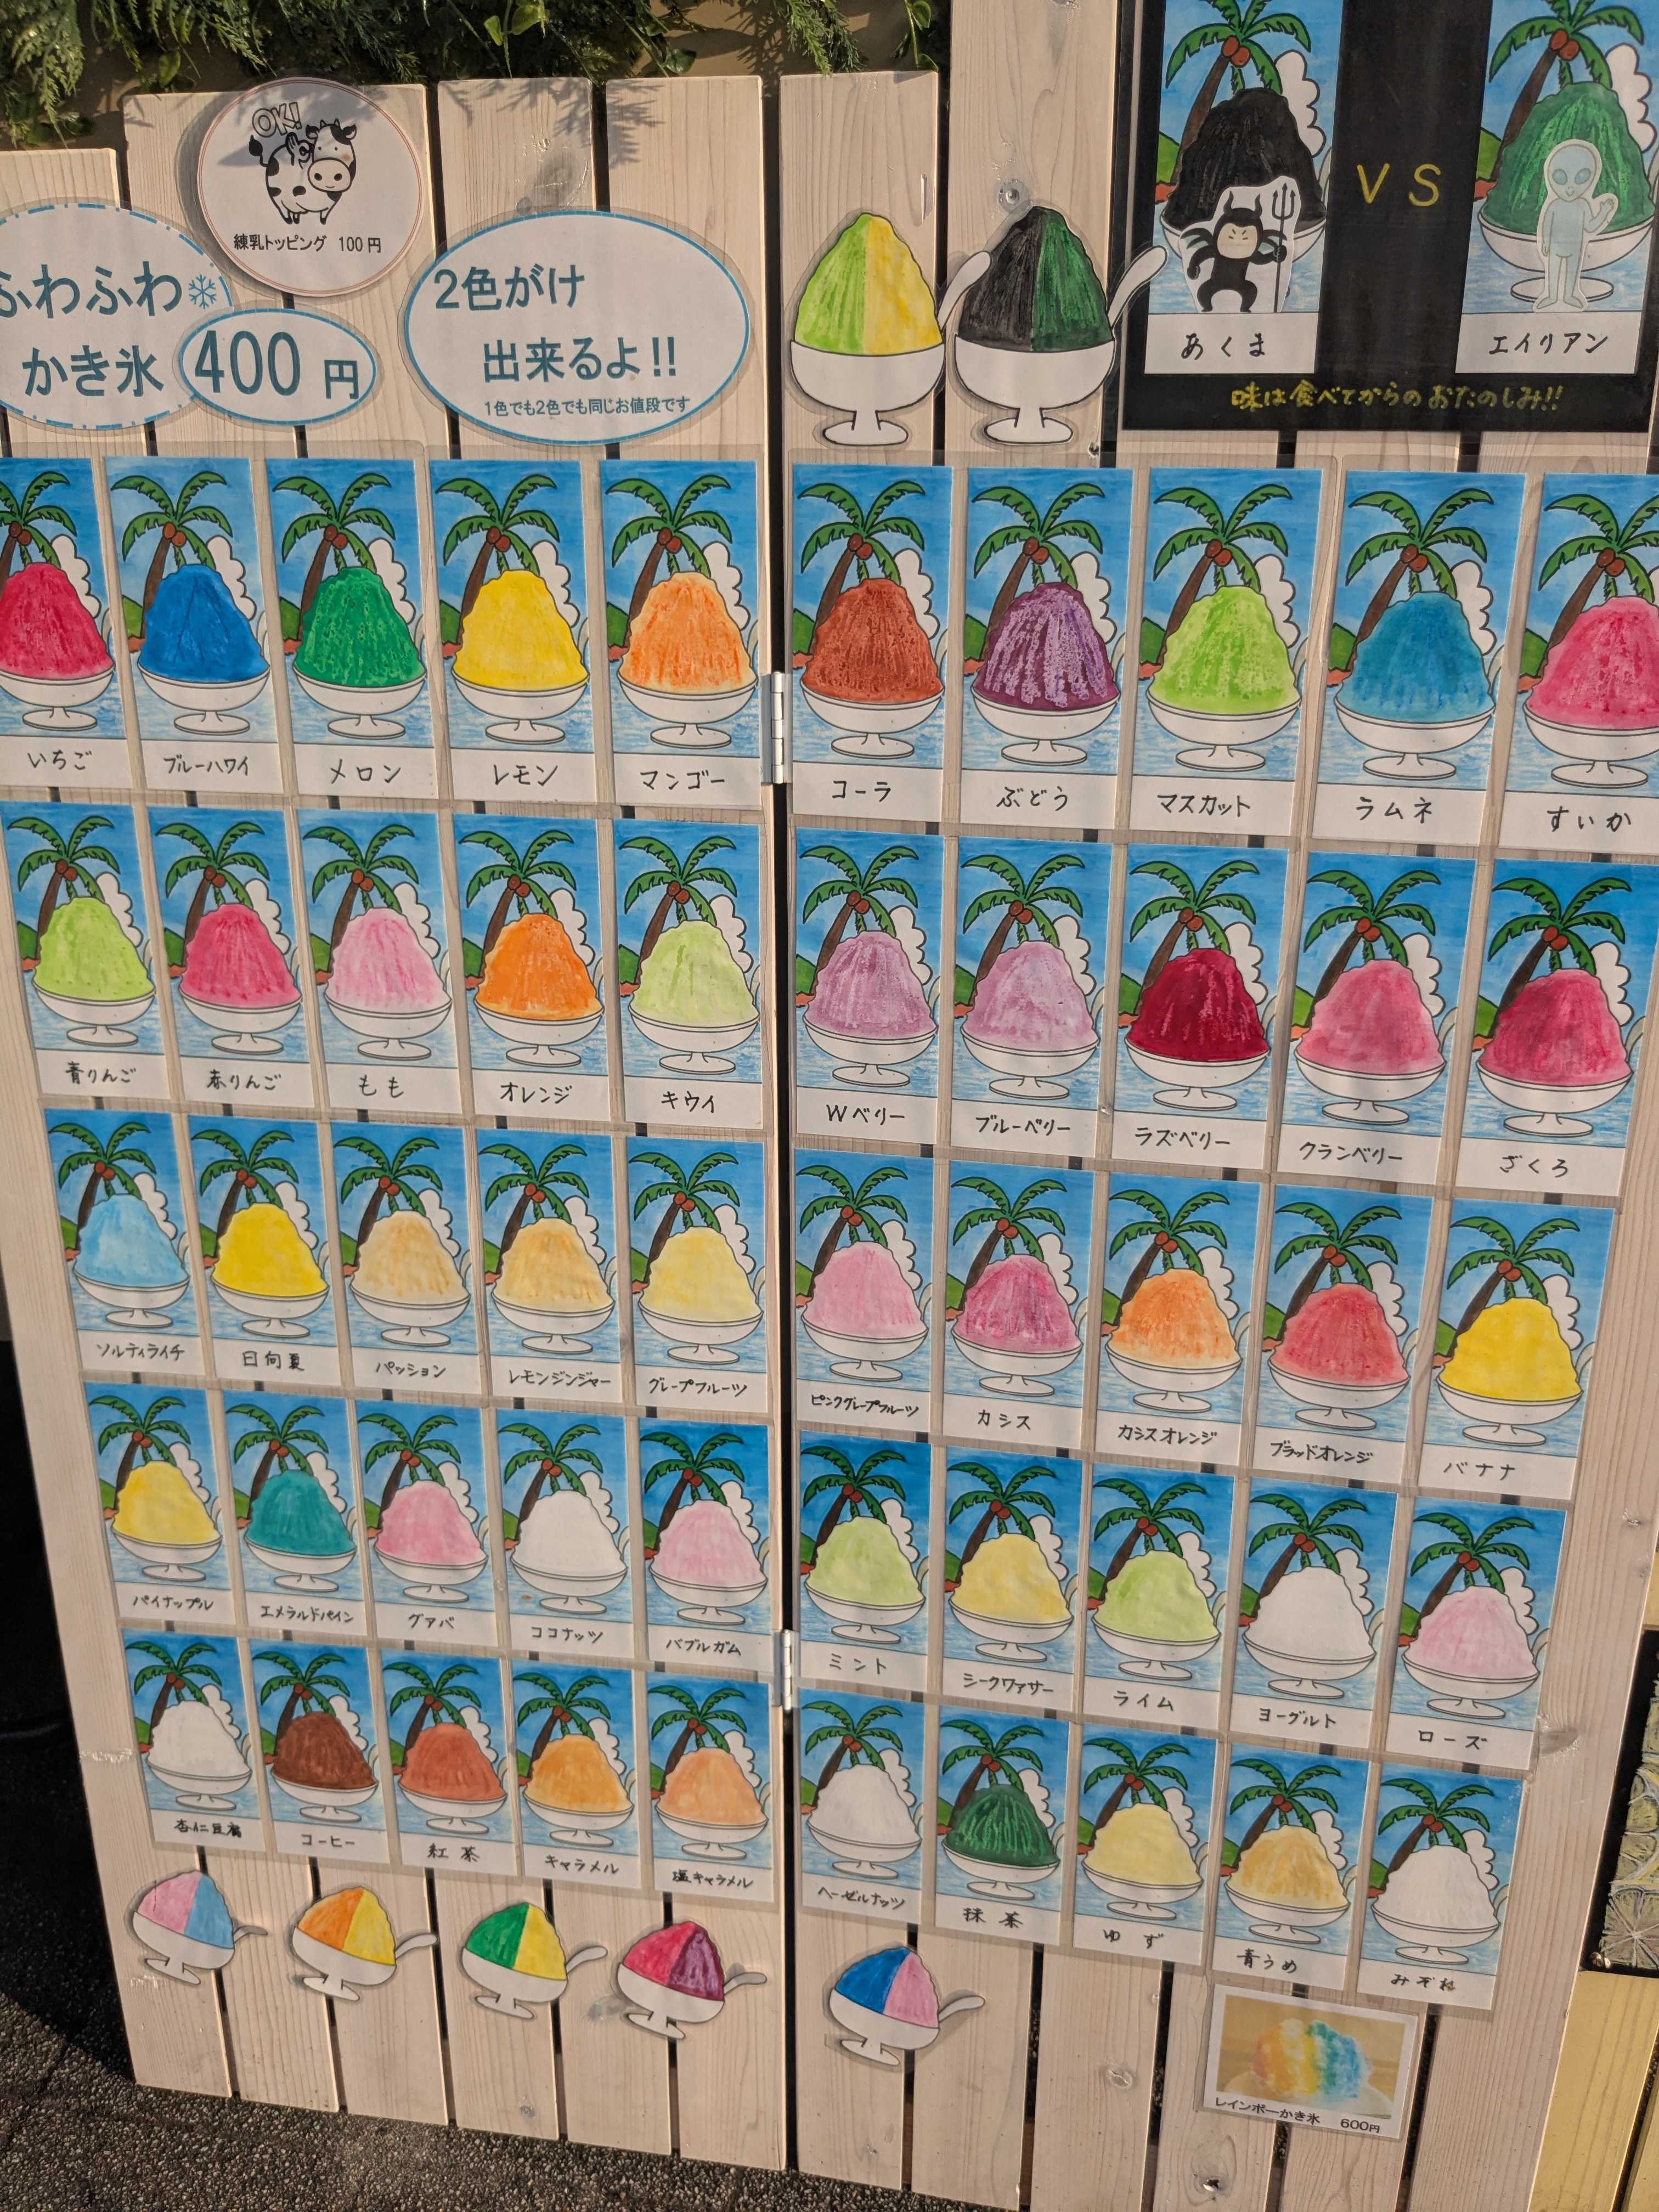 OK!
練乳トッピング 100円
ふわふわ
かき氷 400円
2色がけ
出来るよ!!
1色でも2色でも同じお値段です
VS
あくま
エイリアン
味は食べてからのおたのしみ!!
いちご
ブルーハワイ
メロン
レモン
マンゴー
コーラ
ぶどう
マスカット
ラムネ
すいか
青りんご
赤りんご
もも
オレンジ
キウイ
Wベリー
ブルーベリー
ラズベリー
クランベリー
ざくろ
ソルティライチ
日向夏
パッション
レモンジンジャー
グレープフルーツ
ピンクグレープフルーツ
カシス
カシスオレンジ
ブラッドオレンジ
バナナ
パイナップル
エメラルドパイン
グアバ
ココナッツ
バブルガム
ミント
シークワァサー
ライム
ヨーグルト
ローズ
杏仁豆腐
コーヒー
紅茶
キャラメル
塩キャラメル
ヘーゼルナッツ
抹茶
ゆず
青うめ
みぞれ
レインボーかき氷 600円